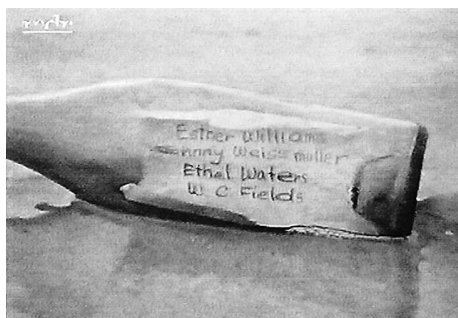 Esther Williams
Johnny Weiss muller
Ethel Waters
W C Fields